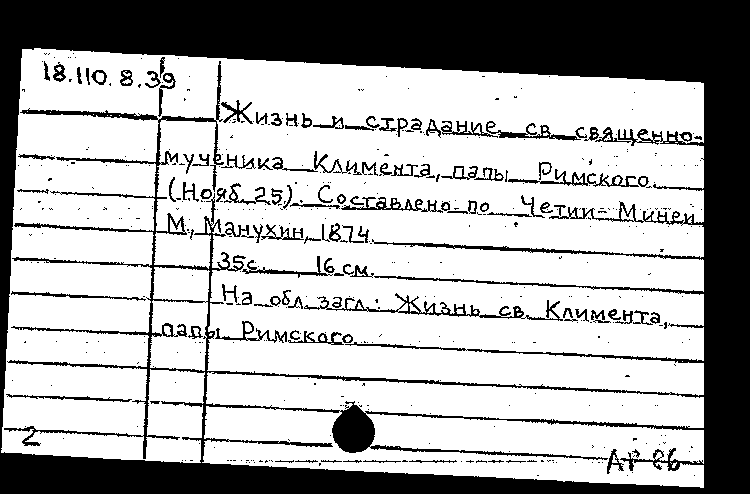 18.110.8.39
Жизнь и страдание св священно-
мученика Климента, папы Римского.
(Нояб. 25). Составлено по Четии-Минеи
М., Манухин, 1874.
35с. 16 см.
На обл. загл.: Жизнь св. Климента,
папы Римского.
2
АР 86